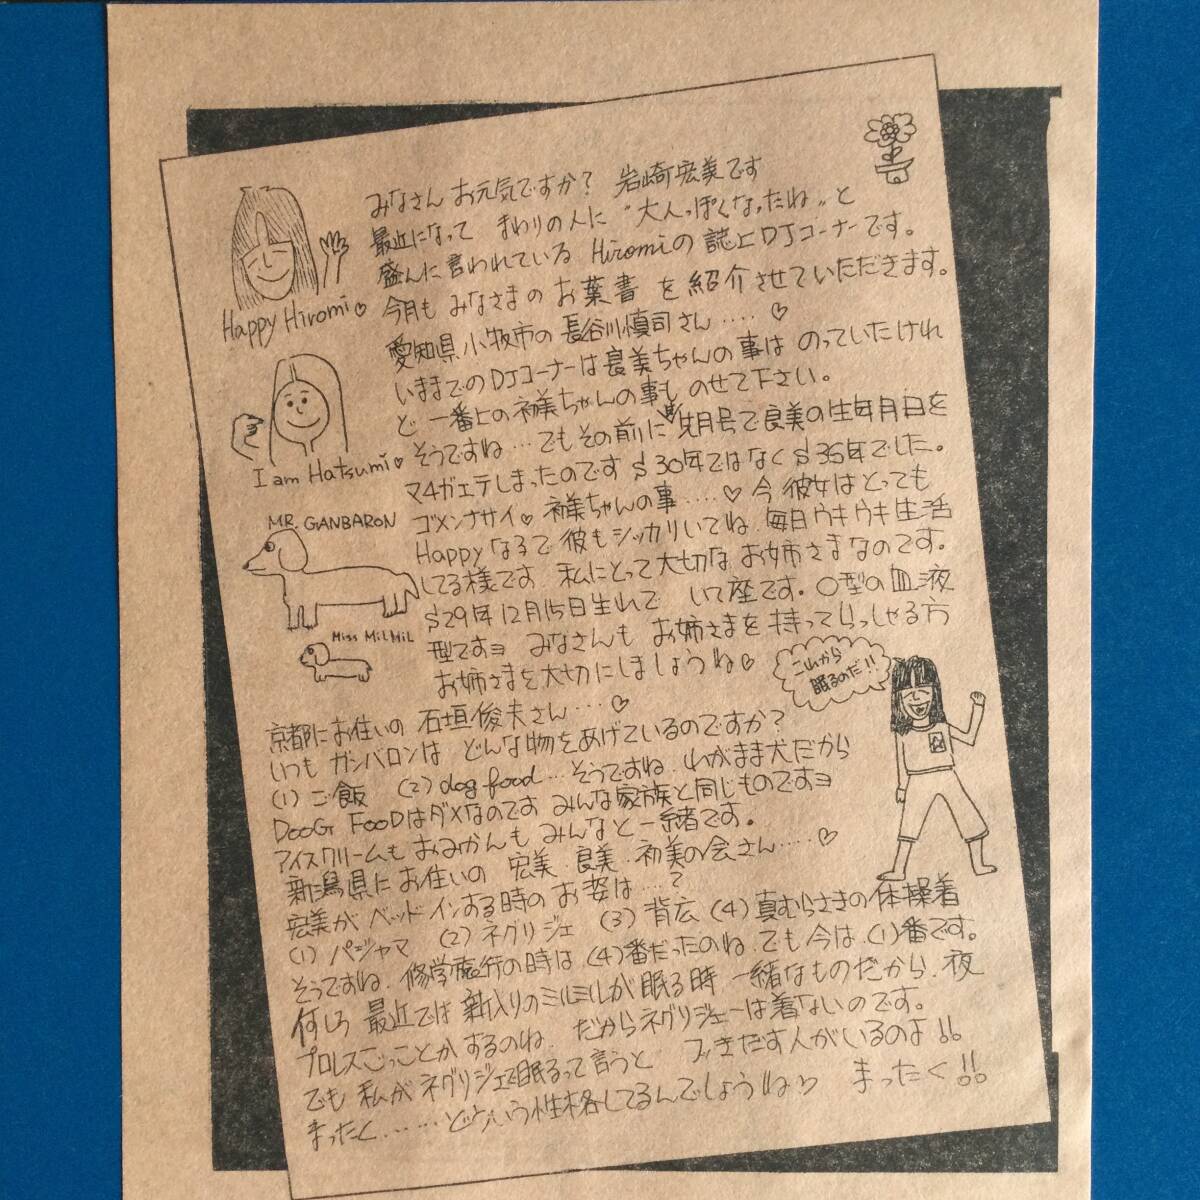 みなさん お元気ですか? 岩崎宏美です
最近になって まわりの人に "大人っぽくなったね" と
盛んに言われている Hiromiの誌上DJコーナーです。
今月も みなさまの お葉書 を 紹介させていただきます。
Happy Hiromi♡
愛知県小牧市の長谷川慎司さん‥‥♡
いままでのDJコーナーは良美ちゃんの事は のっていたけれ
ど 一番上の初美ちゃんの事も のせて下さい。
I am Hatsumi♡
そうですね…でもその前に 先月号で良美の生年月日を
マ4ガエテしまったのです S30年ではなくS36年でした。
ゴメンナサイ♡ 初美ちゃんの事‥‥♡ 今 彼女はとっても
Happy なようで 彼もシッカリいてね 毎日ウキウキ生活
してる様です 私にとって大切な お姉さまなのです。
S29年12月15日生れで いて座です。O型の血液
型ですヨ みなさんも お姉さまを 持ってらっしゃる方
お姉さまを大切にしましょうね♡
MR. GANBARON
Miss MiLMiL
これから
眠るのだ!!
京都にお住いの 石垣俊夫さん‥‥♡
いつも ガンバロンは どんな物をあげているのですか?
(1) ご飯 (2) dog food…そうですね わがまま犬だから
DooG FooDはダメなのです みんな家族と同じものですヨ
アイスクリームも おみかんも みんなと一緒です。
新潟県にお住いの 宏美・良美・初美の会さん‥‥♡
宏美が ベッドインする時の お姿は…?
(1) パジャマ (2) ネグリジェ (3) 背広 (4) 真むらさきの体操着
そうですね 修学旅行の時は (4)番だったのね でも今は (1)番です。
何しろ 最近では 新入りのミルミルが眠る時 一緒なものだから 夜
プロレスごっことかするのね だからネグリジェーは着ないのです。
でも 私が ネグリジェで眠るって言うと フきだす人がいるのよ!!
まったく‥‥‥どういう性格してるんでしょうね♡ まったく!!